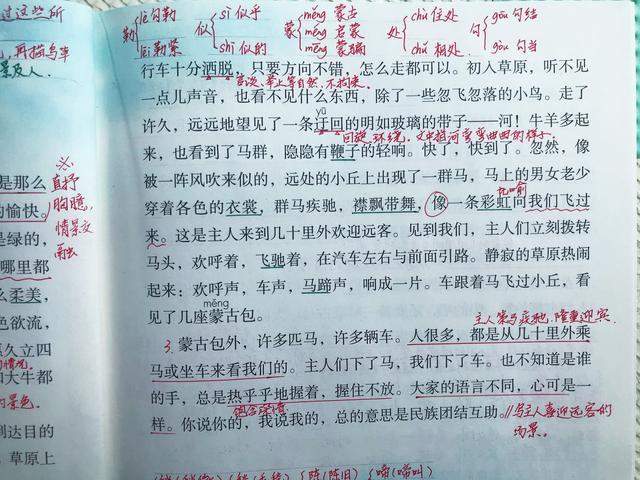 过这些所
，再描写率
景及人.
是那么
的愉快。
是绿的，
哪里都
么柔美，
色欲流，
久立四
和大牛都
景色.
到达目的
，草原上
※
直抒
胸臆，
情景交
融
勒 lè 勾勒 lēi 勒紧
似 sì 似乎 shì 似的
蒙 měng 蒙古 méng 启蒙 mēng 蒙骗
处 chǔ 住处 chǔ 相处
句 gōu 句结 gòu 句当
行车十分洒脱，只要方向不错，怎么走都可以。初入草原，听不见
言谈、举止等自然，不拘束.
一点儿声音，也看不见什么东西，除了一些忽飞忽落的小鸟。走了
yū
许久，远远地望见了一条迂回的明如玻璃的带子——河！牛羊多起
回旋，环绕，文中指河弯弯曲曲的样子.
来，也看到了马群，隐隐有鞭子的轻响。快了，快到了。忽然，像
被一阵风吹来似的，远处的小丘上出现了一群马，马上的男女老少
比喻
穿着各色的衣裳，群马疾驰，襟飘带舞，像一条彩虹向我们飞过
来。这是主人来到几十里外欢迎远客。见到我们，主人们立刻拨转
马头，欢呼着，飞驰着，在汽车左右与前面引路。静寂的草原热闹
起来：欢呼声，车声，马蹄声，响成一片。车跟着马飞过小丘，看
měng
见了几座蒙古包。
主人策马疾驰，隆重迎宾
3. 蒙古包外，许多匹马，许多辆车。人很多，都是从几十里外乘
马或坐车来看我们的。主人们下了马，我们下了车。也不知道是谁
的手，总是热乎乎地握着，握住不放。大家的语言不同，心可是一
样。你说你的，我说我的，总的意思是民族团结互助。
//写主人喜迎远客的
场景。
阵(阵旧) 啼(啼叫)